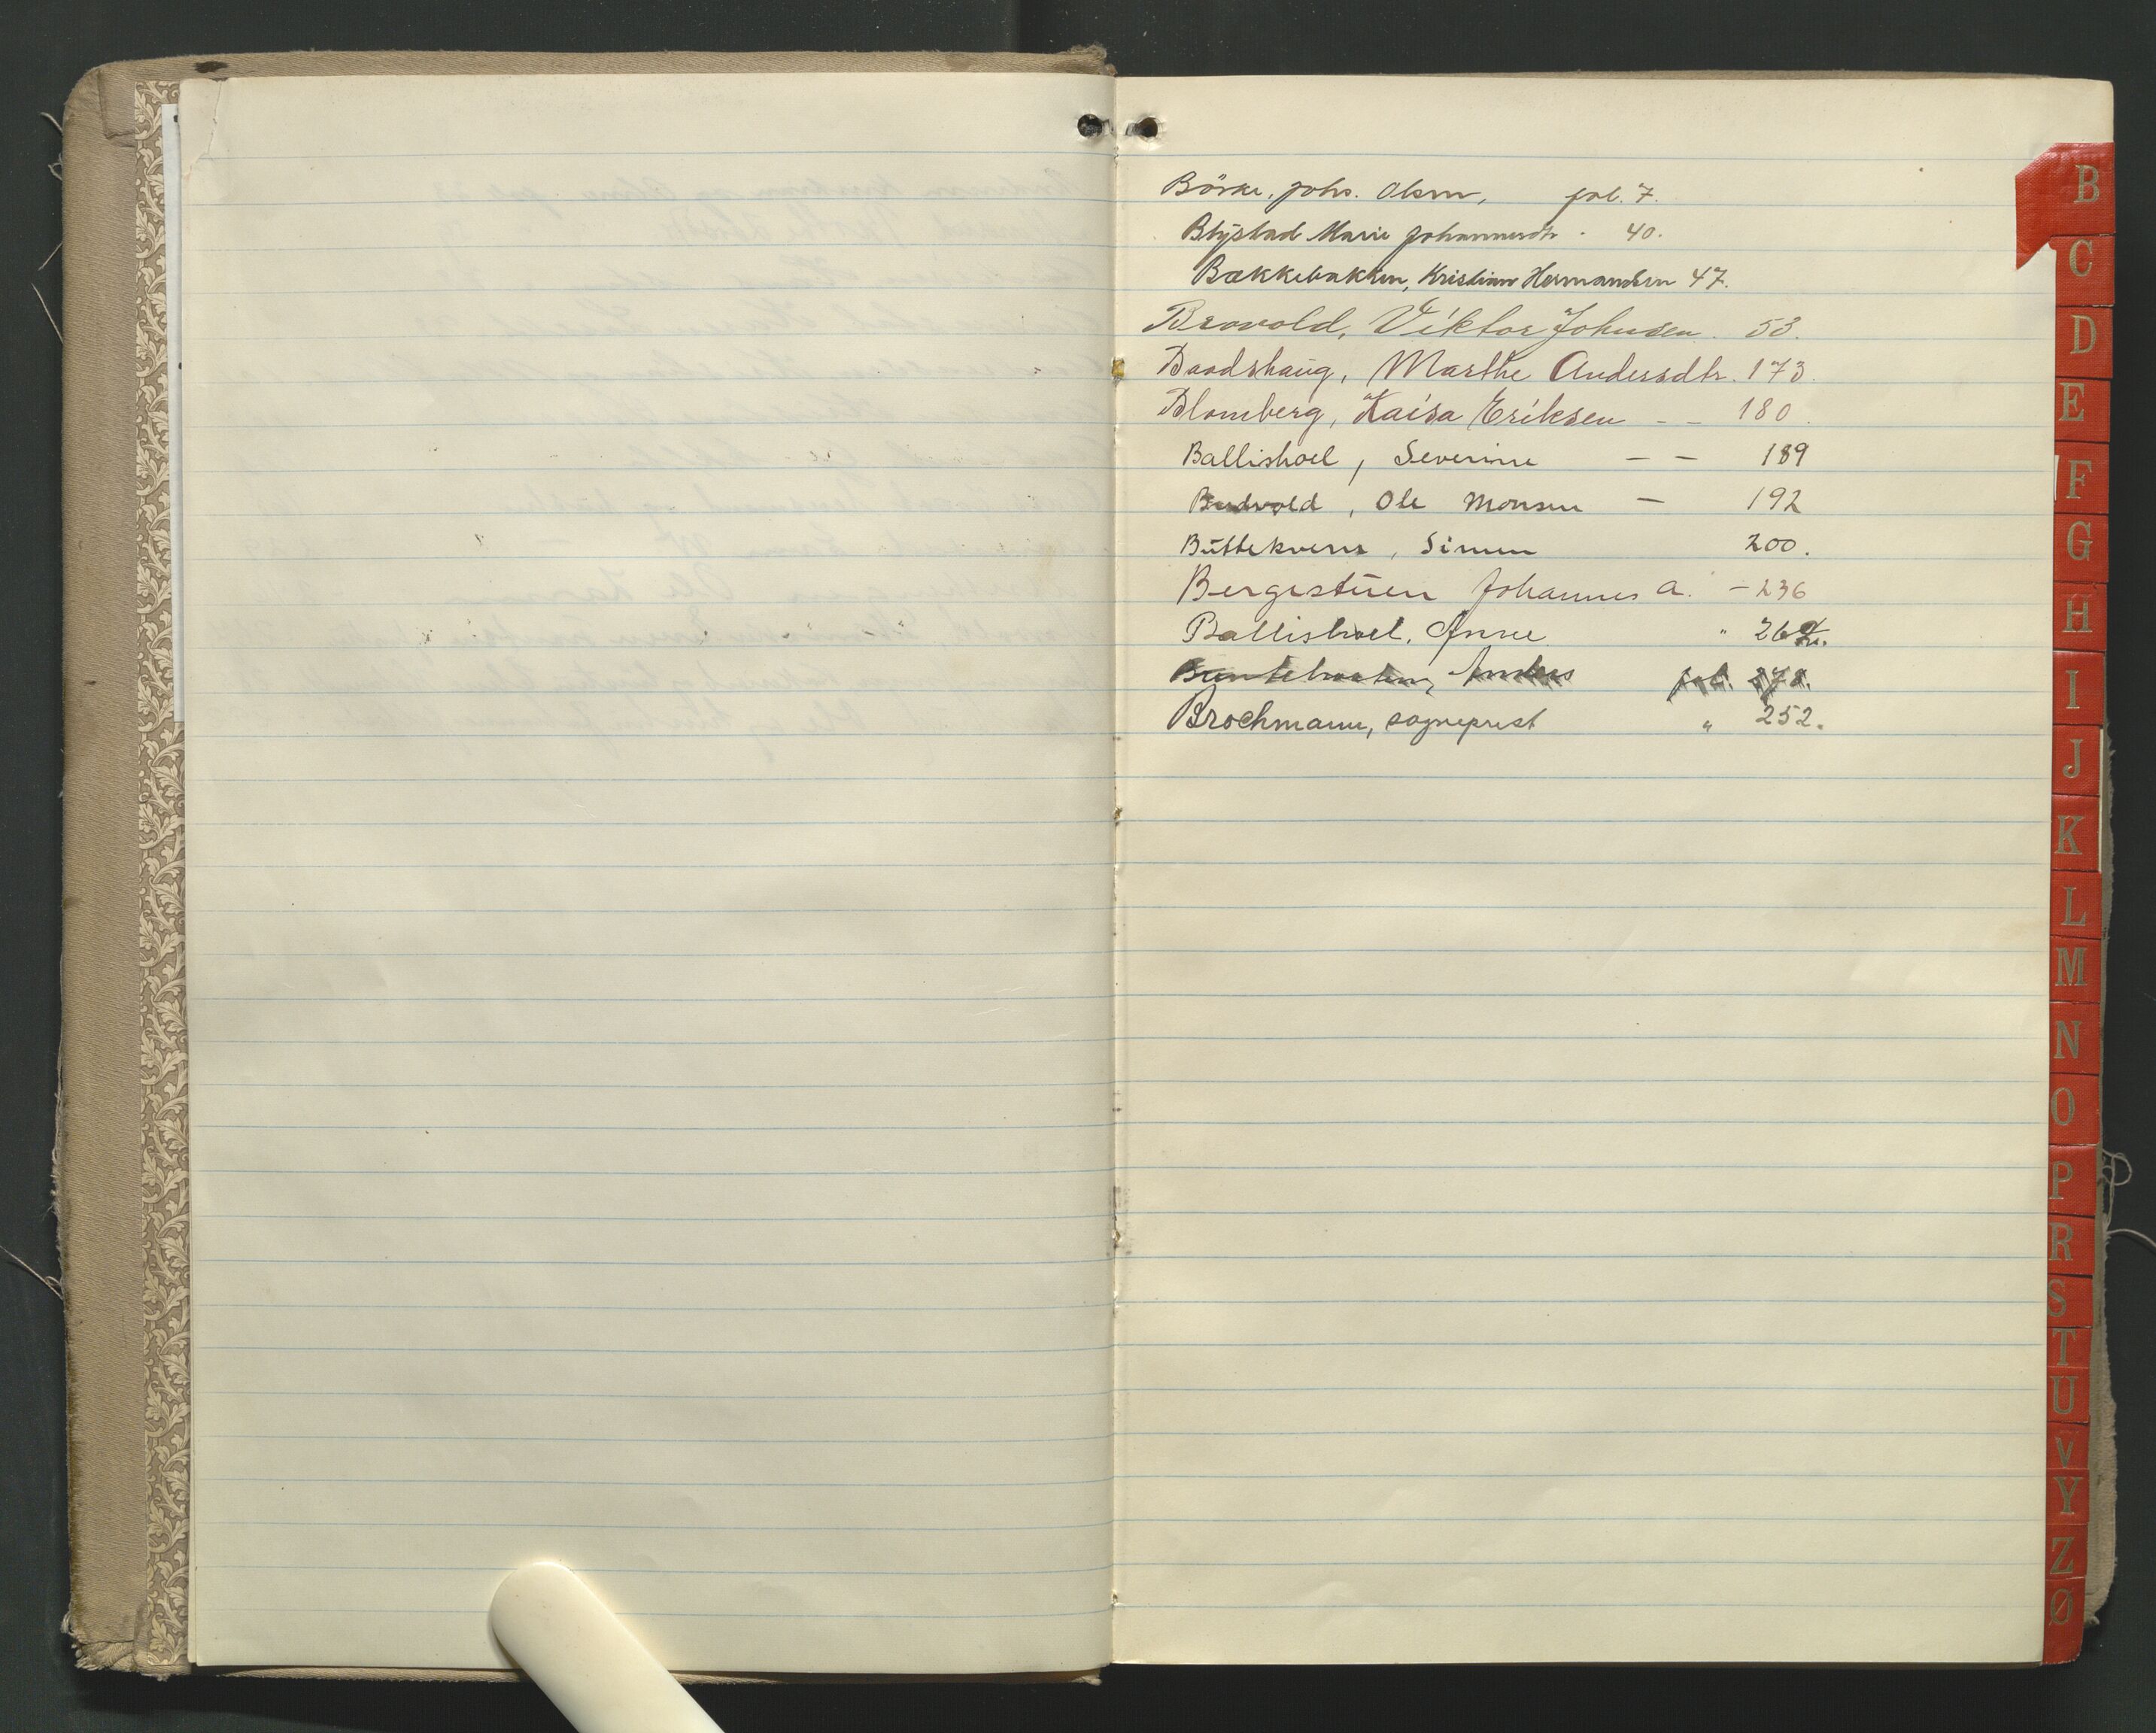 Börke, Johs. Olsen, fol. 7.
Blystad Marie Johannesdtr. 40.
Bækkebakken, Kristian Hermansen 47.
Brovold, Viktor Johnsen. 53.
Baadshaug, Marthe Andersdtr. 173.
Blomberg, Kaisa Eriksen - - 180.
Ballishoel, Severine - - 189
Ole Monsen - 192
Büttekvern, Simen 200.
Bergestüen Johannes A. - 236
Ballishoel, Anne "
Anders fol. 278.
Brochmann, sogneprest " 252.
B
C
D
E
F
G
H
I
J
K
L
M
N
O
P
R
S
T
U
V
Y
Z
Ø